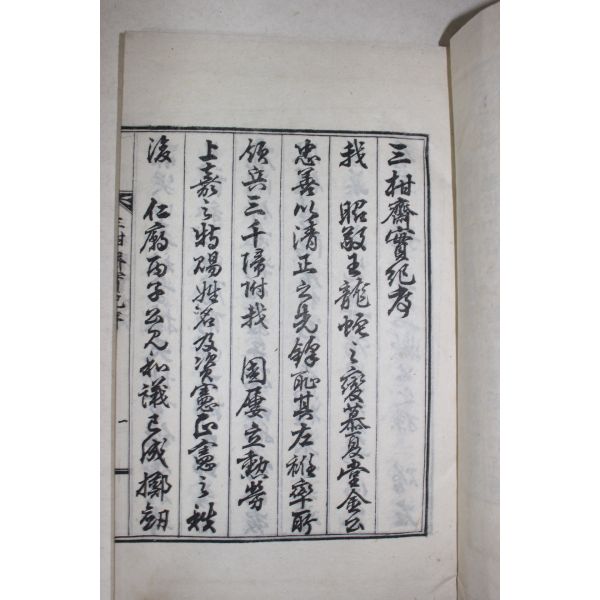 三柑齋實紀序
我 昭敬王龍蛇之變慕夏堂金公
忠善以清正之先鋒恥其左袵率所
領兵三千歸附我 國屢立勳勞
上嘉之特賜姓名及資憲正憲之秩
後 仁廟丙子公見和議已成擲劒
三柑齋實紀序
一